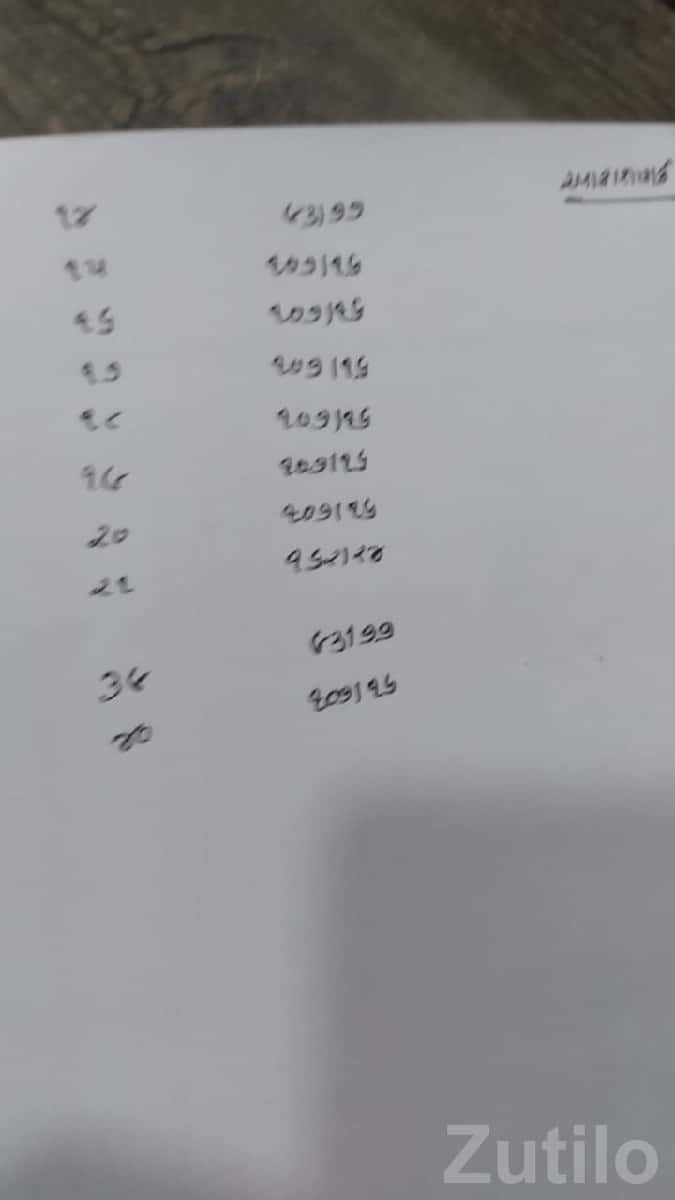 ૧૪ ૯૩/૭૭
૧૫ ૧૦૭/૧૬
૧૬ ૧૦૭/૧૬
૧૭ ૧૦૭/૧૬
૧૮ ૧૦૭/૧૬
૧૯ ૧૦૭/૧૬
૨૦ ૧૦૭/૧૬
૨૧
૩૯ ૯૩/૭૭
૪૦ ૧૦૭/૧૬
Zutilo